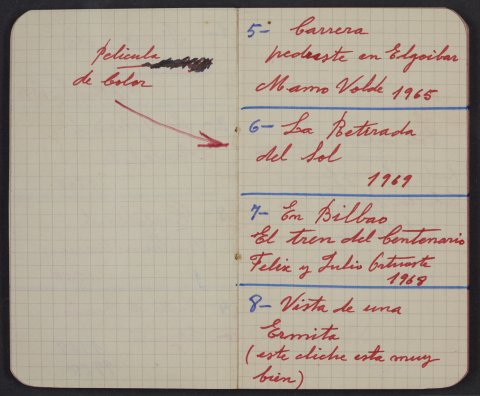 Pelicula
de Color
5- Carrera
pedreste en Elgoibar
Mamo Volde 1965
6- La Retirada
del Sol
1969
7- En Bilbao
El tren del Centenario
Felix y Julio
1968
8- Vista de una
Ermita
(este cliche esta muy
bien)